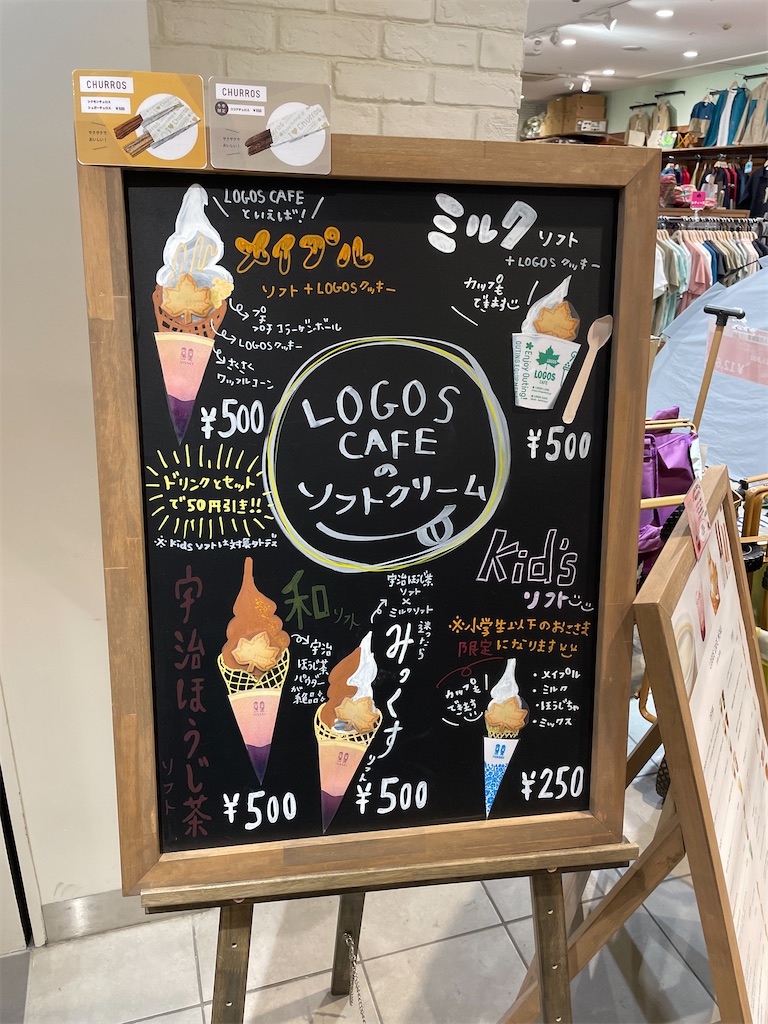 CHURROS
シナモンチュロス
シュガーチュロス ¥500
サクサクで
おいしい!
CHURROS
ココアチュロス ¥550
サクサクで
おいしい!
LOGOS CAFE
といえば!
メイプル
ソフト+LOGOSクッキー
プチコラーゲンボール
LOGOSクッキー
さくさく
ワッフルコーン
¥500
ミルク ソフト
+LOGOSクッキー
カップも
できます
Enjoy Outing!
LOGOS
CAFE
¥500
LOGOS
CAFE
の
ソフトクリーム
ドリンクとセット
で50円引き!!
※Kidsソフトは対象外デス
宇治ほうじ茶
ソフト
和 ソフト
宇治
ほうじ茶
パウダー
が
絶品
¥500
宇治ほうじ茶
ソフト
×
ミルクソフト
迷ったら
みっくす
ソフト
¥500
Kid's
ソフト
※小学生以下のおこさま
限定になります
カップも
できます
・メイプル
・ミルク
・ほうじちゃ
・ミックス
¥250